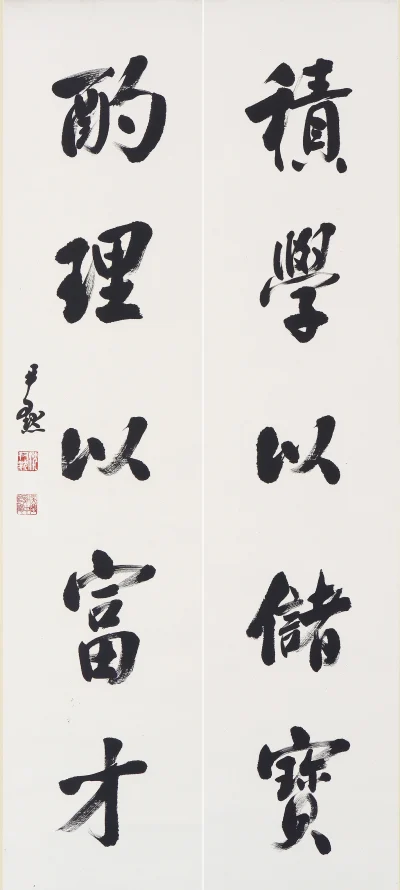 積學以儲寶
酌理以富才
尹默